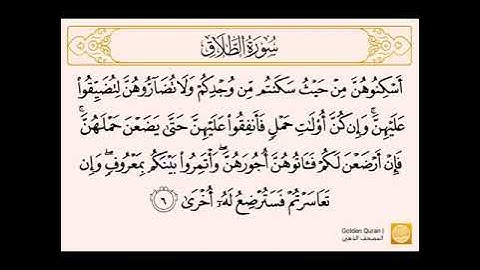 سُورَةُ الطَّلَاقِ
أَسْكِنُوهُنَّ مِنْ حَيْثُ سَكَنتُم مِّن وُجْدِكُمْ وَلَا تُضَآرُّوهُنَّ لِتُضَيِّقُوا۟
عَلَيْهِنَّ ۚ وَإِن كُنَّ أُو۟لَٰتِ حَمْلٍ فَأَنفِقُوا۟ عَلَيْهِنَّ حَتَّىٰ يَضَعْنَ حَمْلَهُنَّ ۚ
فَإِنْ أَرْضَعْنَ لَكُمْ فَـَٔاتُوهُنَّ أُجُورَهُنَّ ۖ وَأْتَمِرُوا۟ بَيْنَكُم بِمَعْرُوفٍ ۖ وَإِن
تَعَاسَرْتُمْ فَسَتُرْضِعُ لَهُۥٓ أُخْرَىٰ ٦
Golden Quran |
المصحف الذهبي